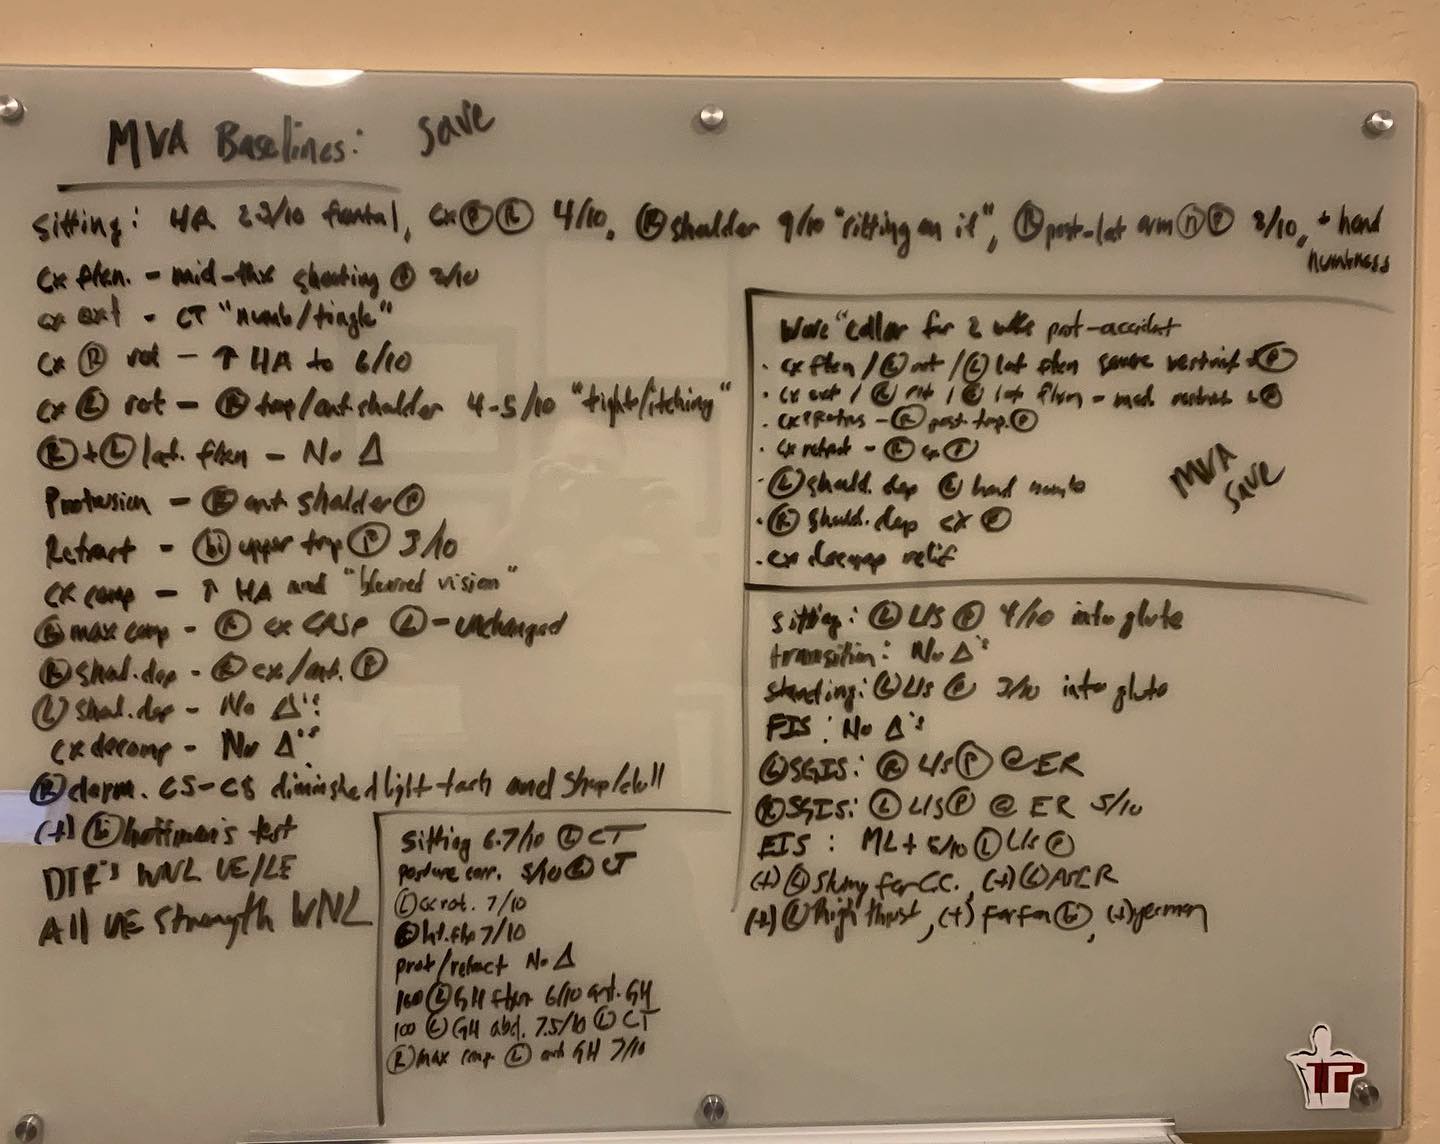 MVA Baselines: save
Sitting: HA 2-3/10 frontal, cx Ⓟ Ⓡ 4/10, Ⓡ shoulder 9/10 "sitting on it", Ⓡ post-lat arm Ⓟ 3/10, + hand numbness
cx flxn. - mid-thx shooting Ⓟ 3/10
cx ext - CT "numb/tingle"
cx Ⓡ rot - ↑ HA to 6/10
cx Ⓛ rot - Ⓡ trap/ant shoulder 4-5/10 "tight/itching"
Ⓡ + Ⓛ lat. flxn - No Δ
Protrusion - Ⓡ ant shoulder Ⓟ
Retract - ⓑⓘ upper trap Ⓟ 3/10
cx comp - ↑ HA and "blurred vision"
Ⓡ max comp - Ⓡ cx Ⓛ - unchanged
Ⓡ shoul. dep - Ⓡ cx/ant. Ⓟ
Ⓛ shoul. dep - No Δ's
cx decomp - No Δ's
Ⓡ derm. C5-C8 diminished light touch and sharp/dull
(+) hoffman's test
DTR's WNL UE/LE
All UE strength WNL
Wore "collar for 2 wks post-accident
· cx flxn / Ⓛ rot / Ⓛ lat flxn severe restrict Ⓟ
· cx ext / Ⓡ rot / Ⓡ lat flxn - mod. restrict Ⓟ
· Ⓡ post. trap. Ⓟ
· cx retract - Ⓡ cx Ⓟ
· Ⓛ should. dep Ⓛ hand numb
· Ⓡ should. dep cx Ⓟ
· cx decomp relief
MVA
save
Sitting 6-7/10 Ⓛ CT
posture corr. 5/10 Ⓛ CT
Ⓛ cx rot. 7/10
lat. flx 7/10
prot/retract No Δ
160 Ⓛ GH flxn 6/10 ant. GH
100 Ⓛ GH abd. 7.5/10 Ⓛ CT
Ⓡ max comp Ⓛ ant GH 7/10
sitting: Ⓛ L/s Ⓟ 4/10 into glute
transition: No Δ's
standing: Ⓛ L/s Ⓟ 3/10 into glute
FIS: No Δ's
Ⓛ SGIS: Ⓡ L/s Ⓟ @ ER
Ⓡ SGIS: Ⓛ L/s Ⓟ @ ER 5/10
EIS: ML + 5/10 Ⓛ L/s Ⓟ
(+) Ⓛ (+) Ⓛ ASLR
(+) Ⓛ thigh thrust, (+) farfan, (+) yeoman
TP